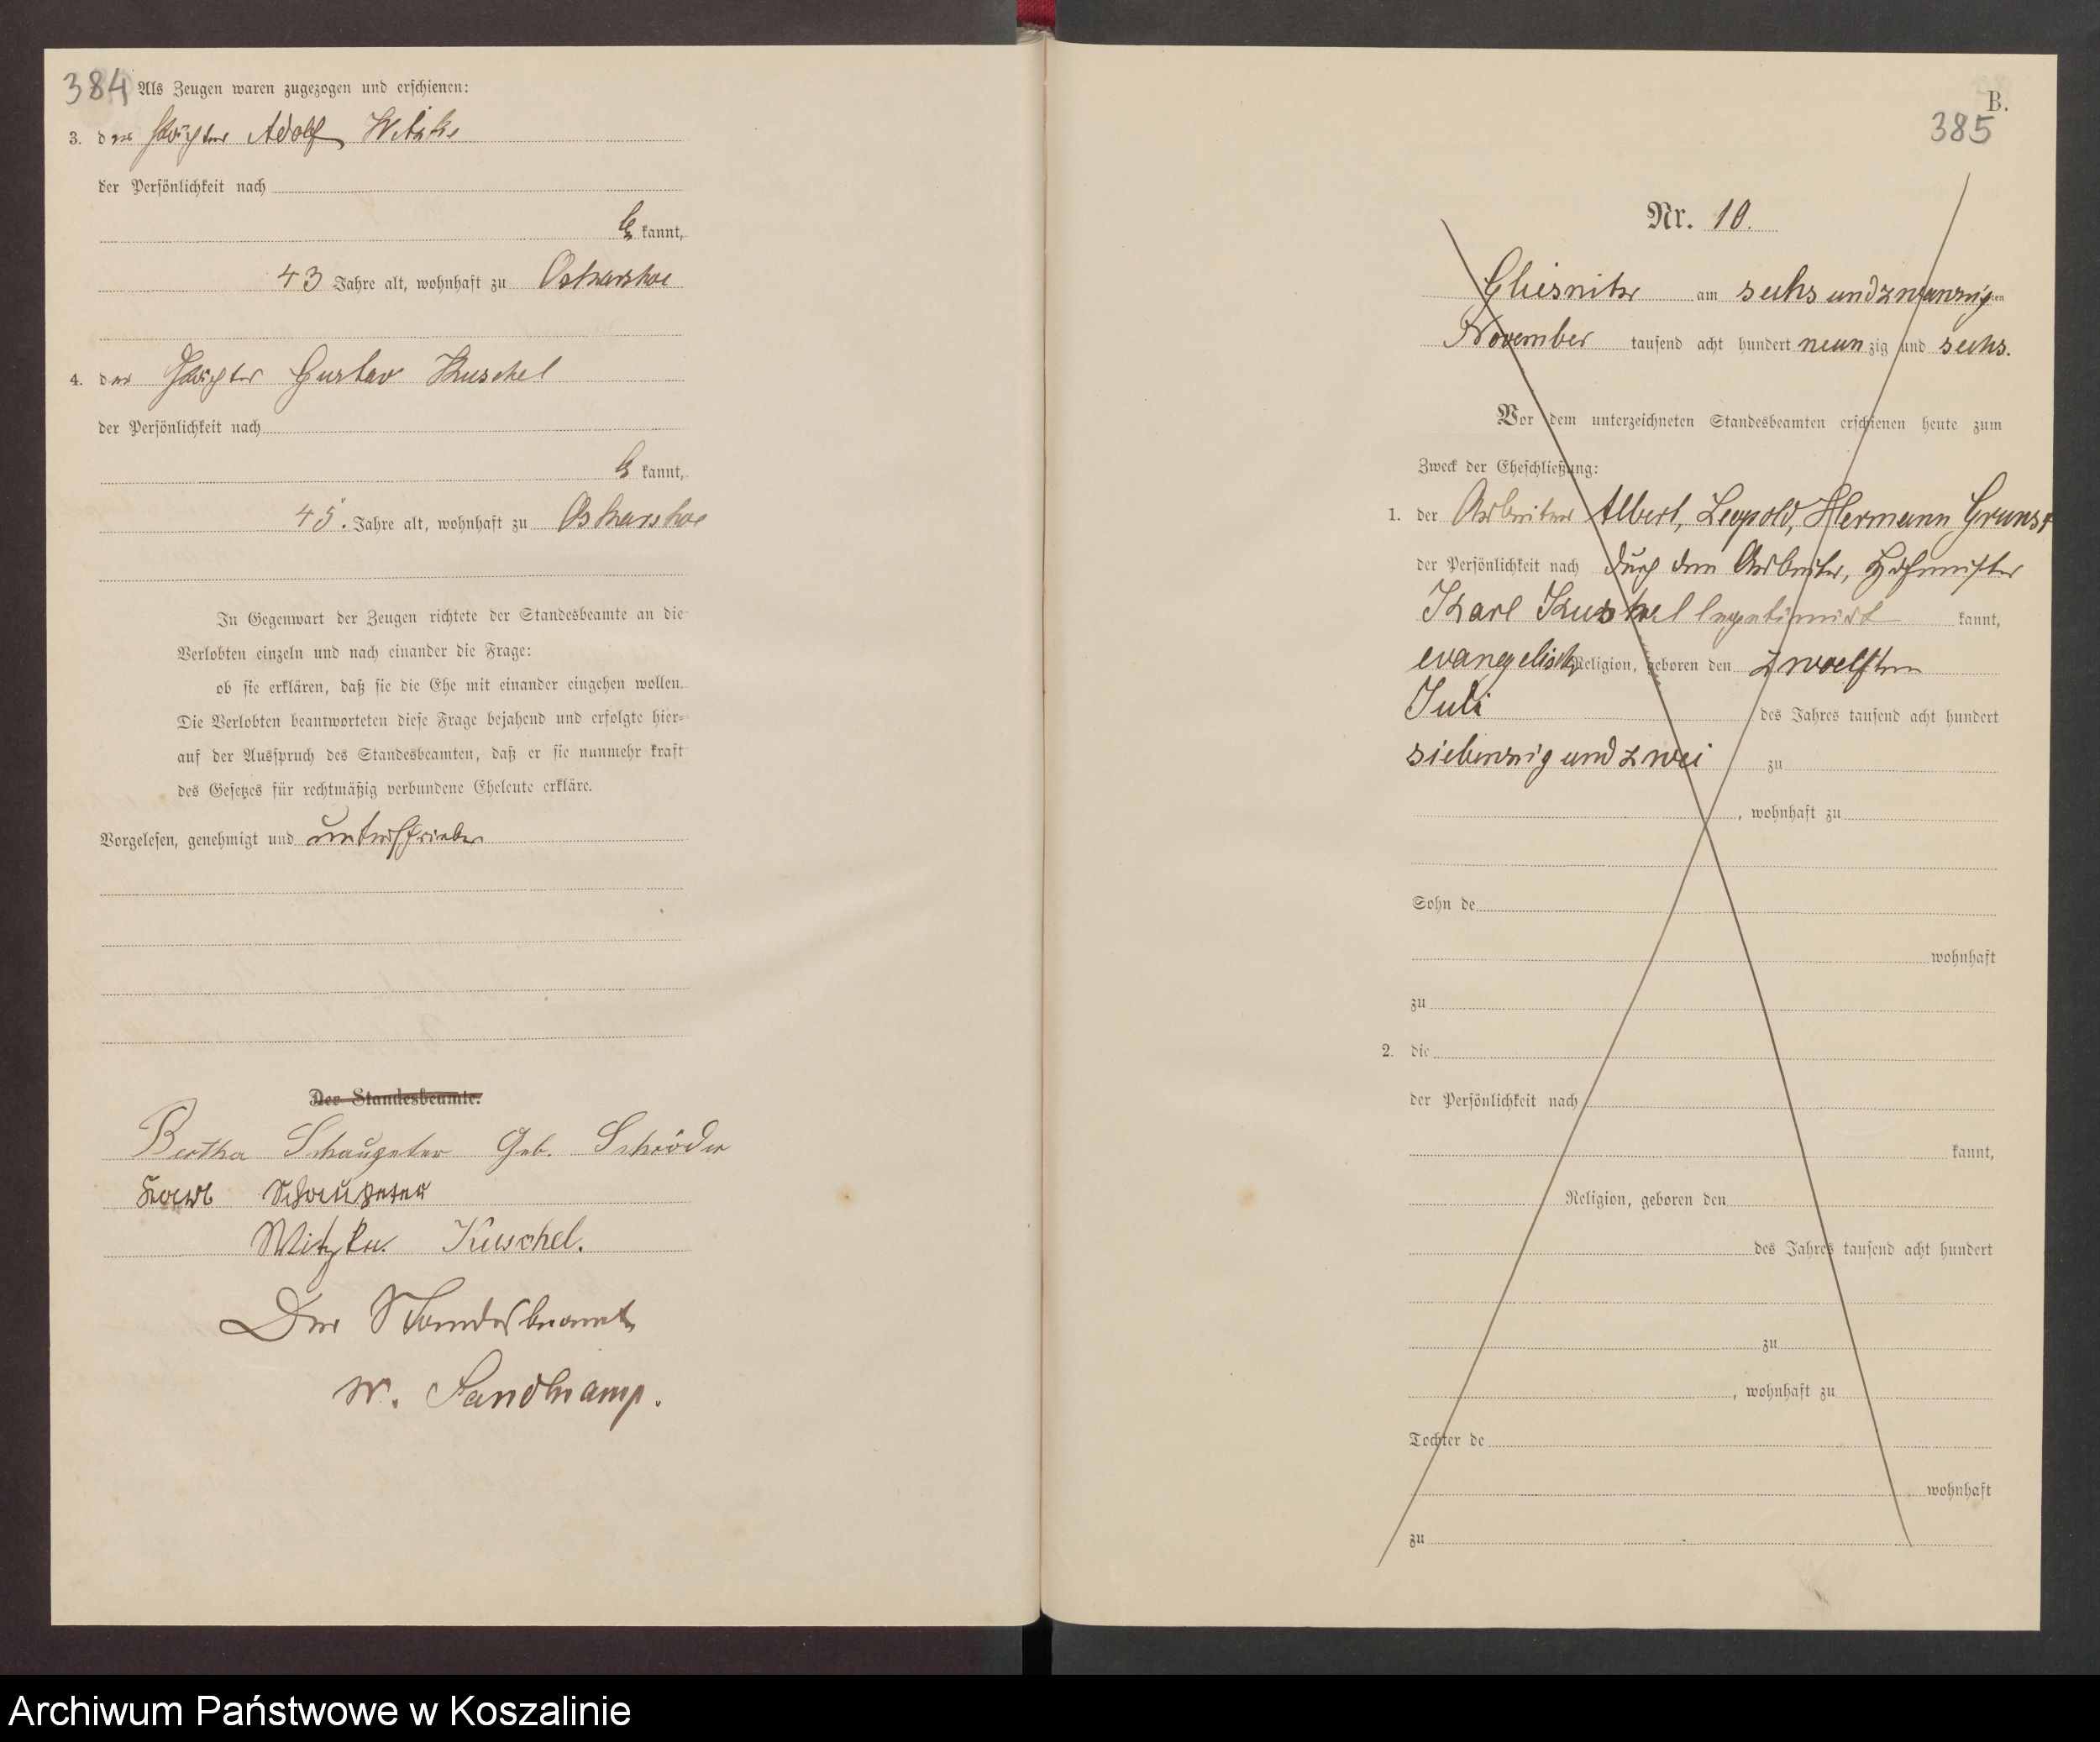 384 Als Zeugen waren zugezogen und erschienen:
3. der Pächter Adolf Witzke
der Persönlichkeit nach
be kannt,
43 Jahre alt, wohnhaft zu Oskarshoe
4. der Pächter Gustav Kuschel
der Persönlichkeit nach
be kannt,
45. Jahre alt, wohnhaft zu Oskarshoe
In Gegenwart der Zeugen richtete der Standesbeamte an die
Verlobten einzeln und nach einander die Frage:
ob sie erklären, daß sie die Ehe mit einander eingehen wollen.
Die Verlobten beantworteten diese Frage bejahend und erfolgte hier-
auf der Ausspruch des Standesbeamten, daß er sie nunmehr kraft
des Gesetzes für rechtmäßig verbundene Eheleute erkläre.
Vorgelesen, genehmigt und unterschrieben
Der Standesbeamte.
Bertha Schaugeter Geb. Schröder
Witzke. Kuschel.
Der Standesbeamte
W. Sandkamp.
B.
385
Nr. 10.
Gliesnitz am sechs und zwanzigsten
November tausend acht hundert neunzig und sechs.
Vor dem unterzeichneten Standesbeamten erschienen heute zum
Zweck der Eheschließung:
1. der Arbeiter Albert, Leopold, Hermann Grunst
der Persönlichkeit nach durch den Arbeiter, Hofmeister
Karl Kuschel legitimirt kannt,
evangelisch Religion, geboren den zwoelften
Juli des Jahres tausend acht hundert
siebenzig und zwei zu
, wohnhaft zu
Sohn de
wohnhaft
zu
2. die
der Persönlichkeit nach
kannt,
Religion, geboren den
des Jahres tausend acht hundert
zu
, wohnhaft zu
Tochter de
wohnhaft
zu
Archiwum Państwowe w Koszalinie